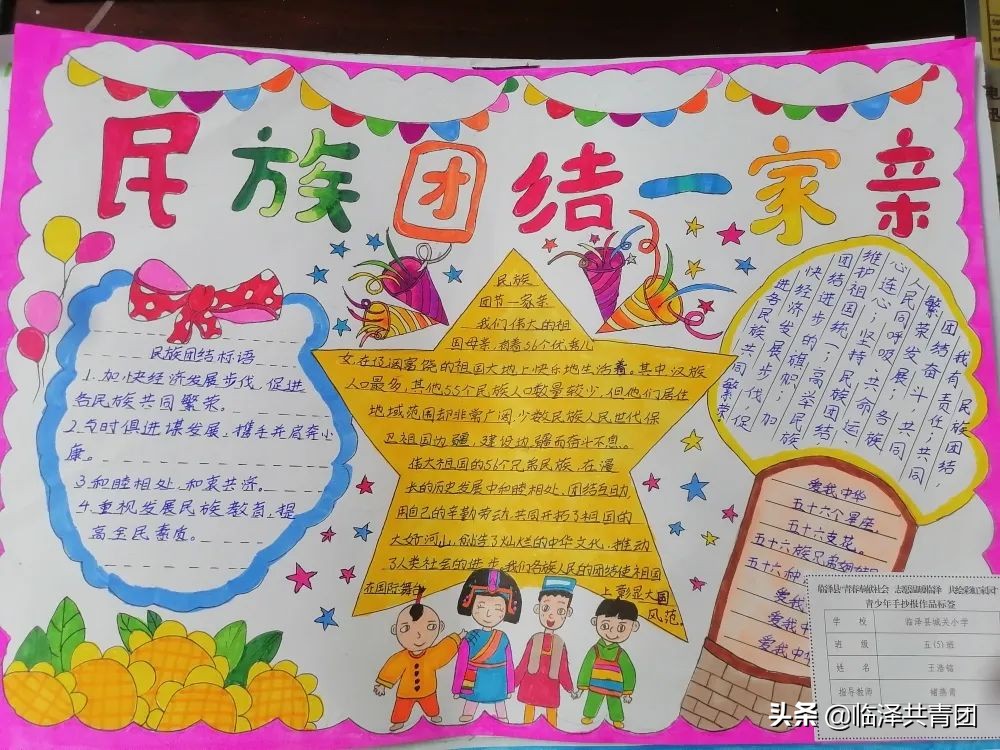 民族团结一家亲
民族团结标语
1.加快经济发展步伐，促进
各民族共同繁荣。
2.与时俱进谋发展，携手并肩奔小
康。
3.和睦相处，和衷共济。
4.重视发展民族教育，提
高全民素质。
民族
团节一家亲
我们伟大的祖
国母亲，有着56个优秀儿
女，在辽阔富饶的祖国大地上快乐地生活着。其中汉族
人口最多，其他55个民族人口数量较少，但他们居住
地域范围却非常广阔，少数民族人民世代保
卫祖国边疆，建设边疆而奋斗不息。
伟大祖国的56个兄弟民族，在漫
长的历史发展中和睦相处，团结互助，
用自己的辛勤劳动，共同开拓了祖国的
大好河山，创造了灿烂的中华文化，推动
了人类社会的进步，我们各族人民的团结使祖国
在国际舞台
上彰显大国
风范。
我有责任；共同
繁荣奋斗；共同
人民同呼吸、共命运、
心连心；坚持民族团结
维护祖国统一；高举民族
团结进步的旗帜；加
快经济发展步伐，促
进各民族共同繁荣
爱我中华
五十六个星座
五十六支花。
五十六族兄弟姐妹
五十六种
爱我
爱我中
爱我中华
临泽县"青春奉献社会 志愿温暖临泽 共绘彩虹家园"
青少年手抄报作品标签
学 校 临泽县城关小学
班 级 五(5)班
姓 名 王浩铭
指导教师 褚燕青
头条 @临泽共青团